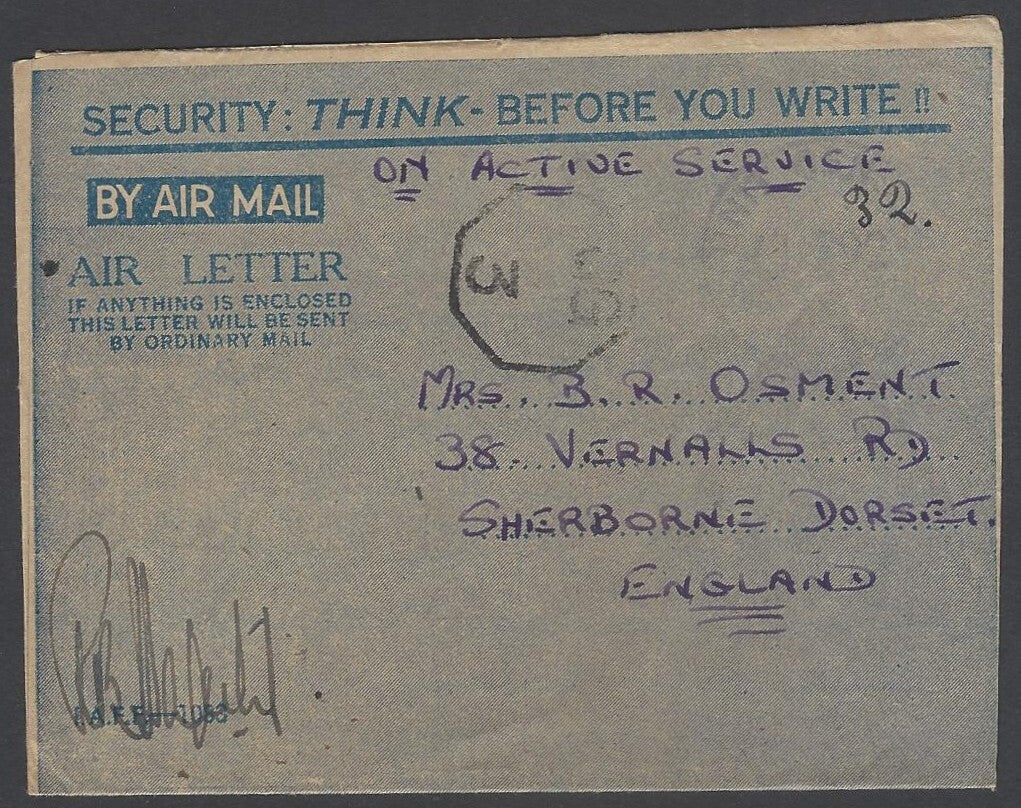 SECURITY: THINK- BEFORE YOU WRITE !!
ON ACTIVE SERVICE
BY AIR MAIL
32.
AIR LETTER
IF ANYTHING IS ENCLOSED
THIS LETTER WILL BE SENT
BY ORDINARY MAIL
3
MRS. B. R. OSMENT
38 VERNALLS RD
SHERBORNE DORSET.
ENGLAND